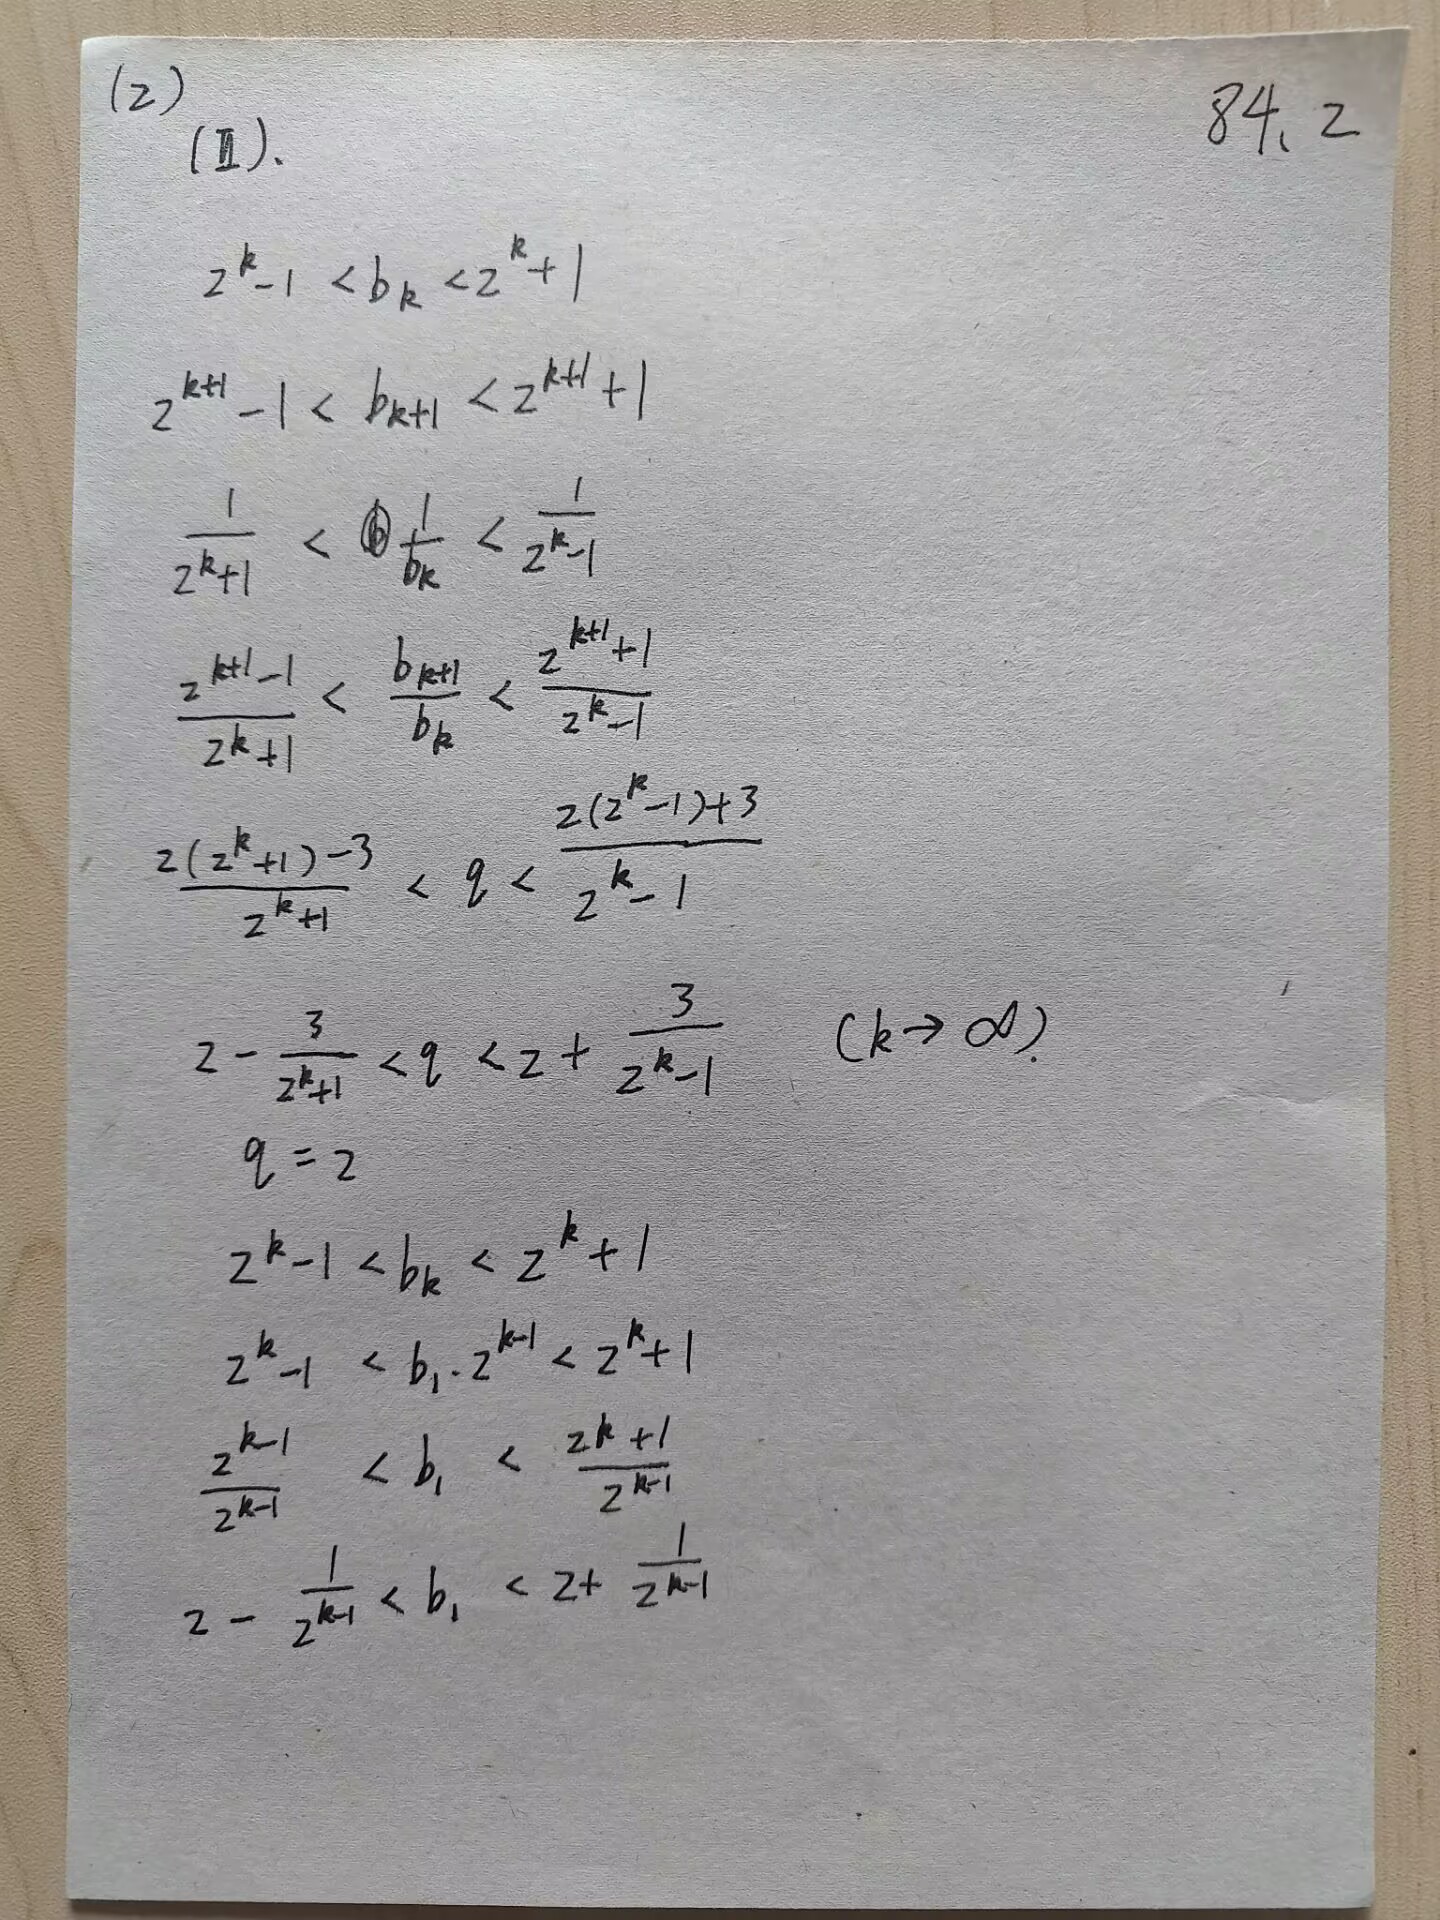 (2)
84. 2
(Ⅱ).
2^k - 1 < b_k < 2^k + 1
2^{k+1} - 1 < b_{k+1} < 2^{k+1} + 1
\frac{1}{2^k+1} < \frac{1}{b_k} < \frac{1}{2^k-1}
\frac{2^{k+1}-1}{2^k+1} < \frac{b_{k+1}}{b_k} < \frac{2^{k+1}+1}{2^k-1}
\frac{2(2^k+1)-3}{2^k+1} < q < \frac{2(2^k-1)+3}{2^k-1}
2 - \frac{3}{2^k+1} < q < 2 + \frac{3}{2^k-1} (k→∞).
q = 2
2^k - 1 < b_k < 2^k + 1
2^k - 1 < b_1 · 2^{k-1} < 2^k + 1
\frac{2^k-1}{2^{k-1}} < b_1 < \frac{2^k+1}{2^{k-1}}
2 - \frac{1}{2^{k-1}} < b_1 < 2 + \frac{1}{2^{k-1}}